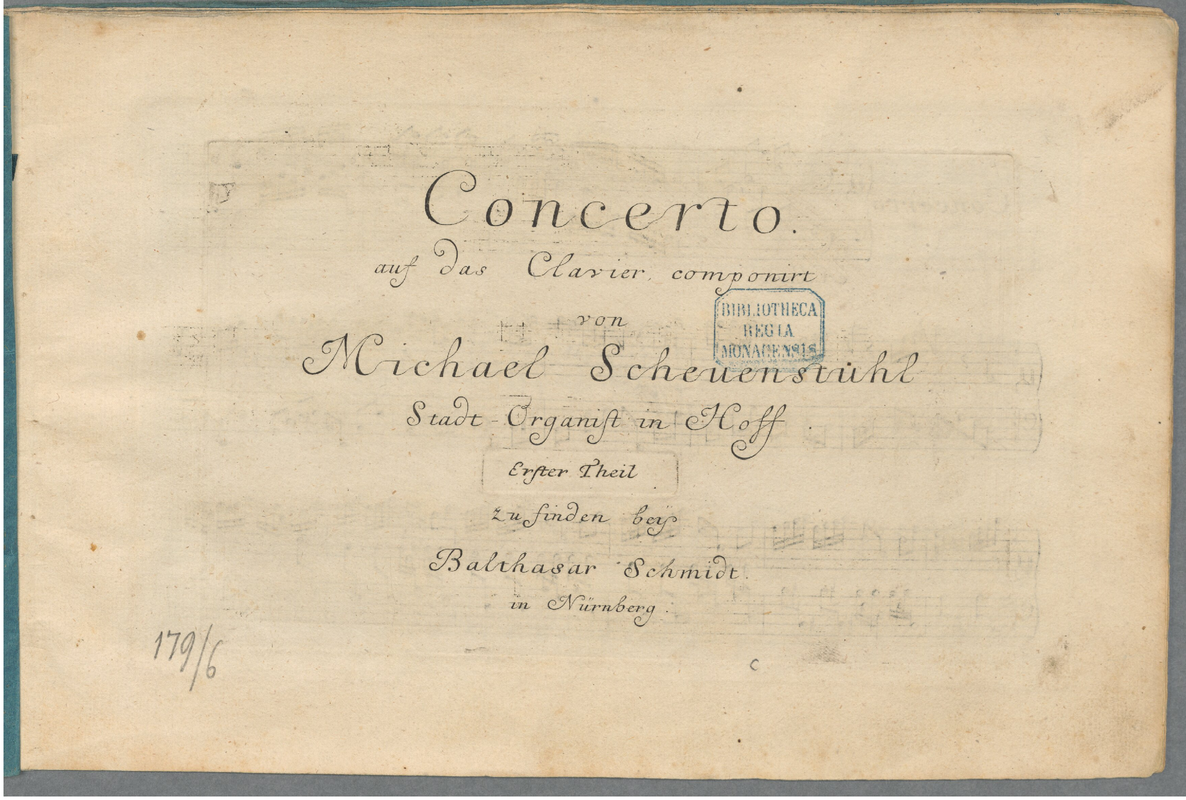 Concerto.
auf das Clavier componirt
von
BIBLIOTHECA
REGIA
MONACENSIS
Michael Scheuenstühl
Stadt-Organist in Hoff.
Erster Theil
zu finden beÿ
Balthasar Schmidt.
in Nürnberg.
179/6
C